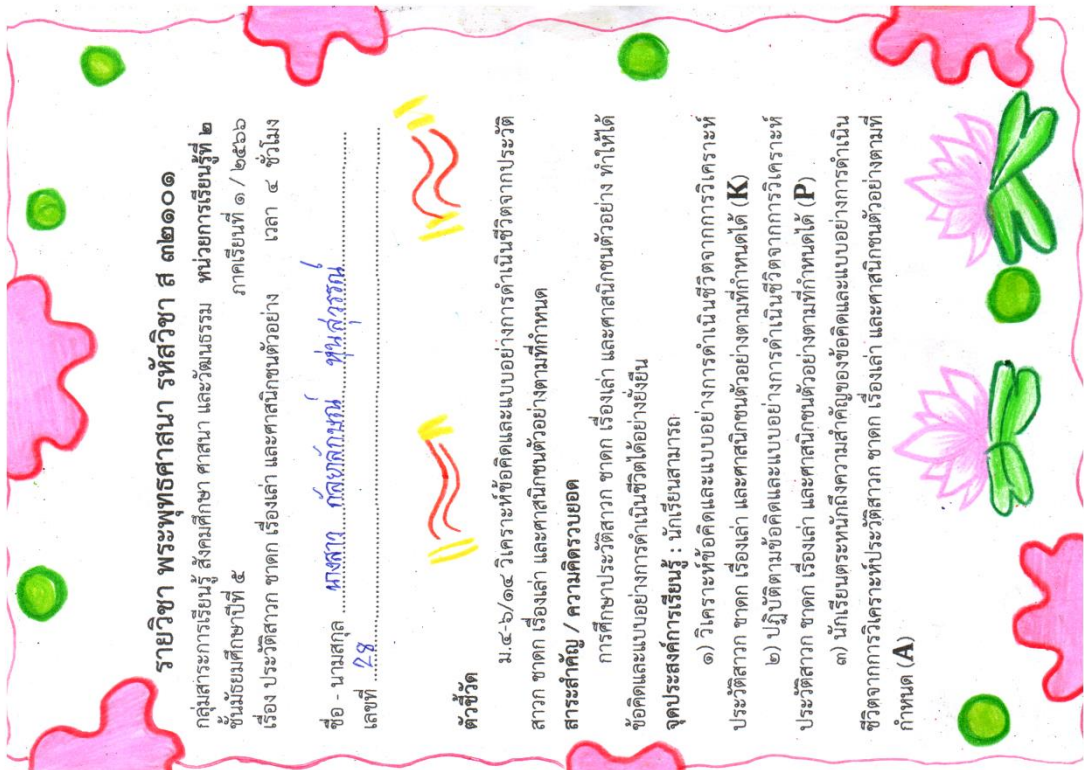 รายวิชา พระพุทธศาสนา รหัสวิชา ส ๓๒๑๐๑
กลุ่มสาระการเรียนรู้ สังคมศึกษา ศาสนา และวัฒนธรรม หน่วยการเรียนรู้ที่ ๒
ชั้นมัธยมศึกษาปีที่ ๕ ภาคเรียนที่ ๑ / ๒๕๖๖
เรื่อง ประวัติสาวก ชาดก เรื่องเล่า และศาสนิกชนตัวอย่าง เวลา ๔ ชั่วโมง
ชื่อ - นามสกุล นางสาว กัลยลักษณ์ หุ่นสุวรรณ์
เลขที่ 28
ตัวชี้วัด
ม.๔-๖/๑๔ วิเคราะห์ข้อคิดและแบบอย่างการดำเนินชีวิตจากประวัติ
สาวก ชาดก เรื่องเล่า และศาสนิกชนตัวอย่างตามที่กำหนด
สาระสำคัญ / ความคิดรวบยอด
การศึกษาประวัติสาวก ชาดก เรื่องเล่า และศาสนิกชนตัวอย่าง ทำให้ได้
ข้อคิดและแบบอย่างการดำเนินชีวิตได้อย่างยั่งยืน
จุดประสงค์การเรียนรู้ : นักเรียนสามารถ
๑) วิเคราะห์ข้อคิดและแบบอย่างการดำเนินชีวิตจากการวิเคราะห์
ประวัติสาวก ชาดก เรื่องเล่า และศาสนิกชนตัวอย่างตามที่กำหนดได้ (K)
๒) ปฏิบัติตามข้อคิดและแบบอย่างการดำเนินชีวิตจากการวิเคราะห์
ประวัติสาวก ชาดก เรื่องเล่า และศาสนิกชนตัวอย่างตามที่กำหนดได้ (P)
๓) นักเรียนตระหนักถึงความสำคัญของข้อคิดและแบบอย่างการดำเนิน
ชีวิตจากการวิเคราะห์ประวัติสาวก ชาดก เรื่องเล่า และศาสนิกชนตัวอย่างตามที่
กำหนด (A)